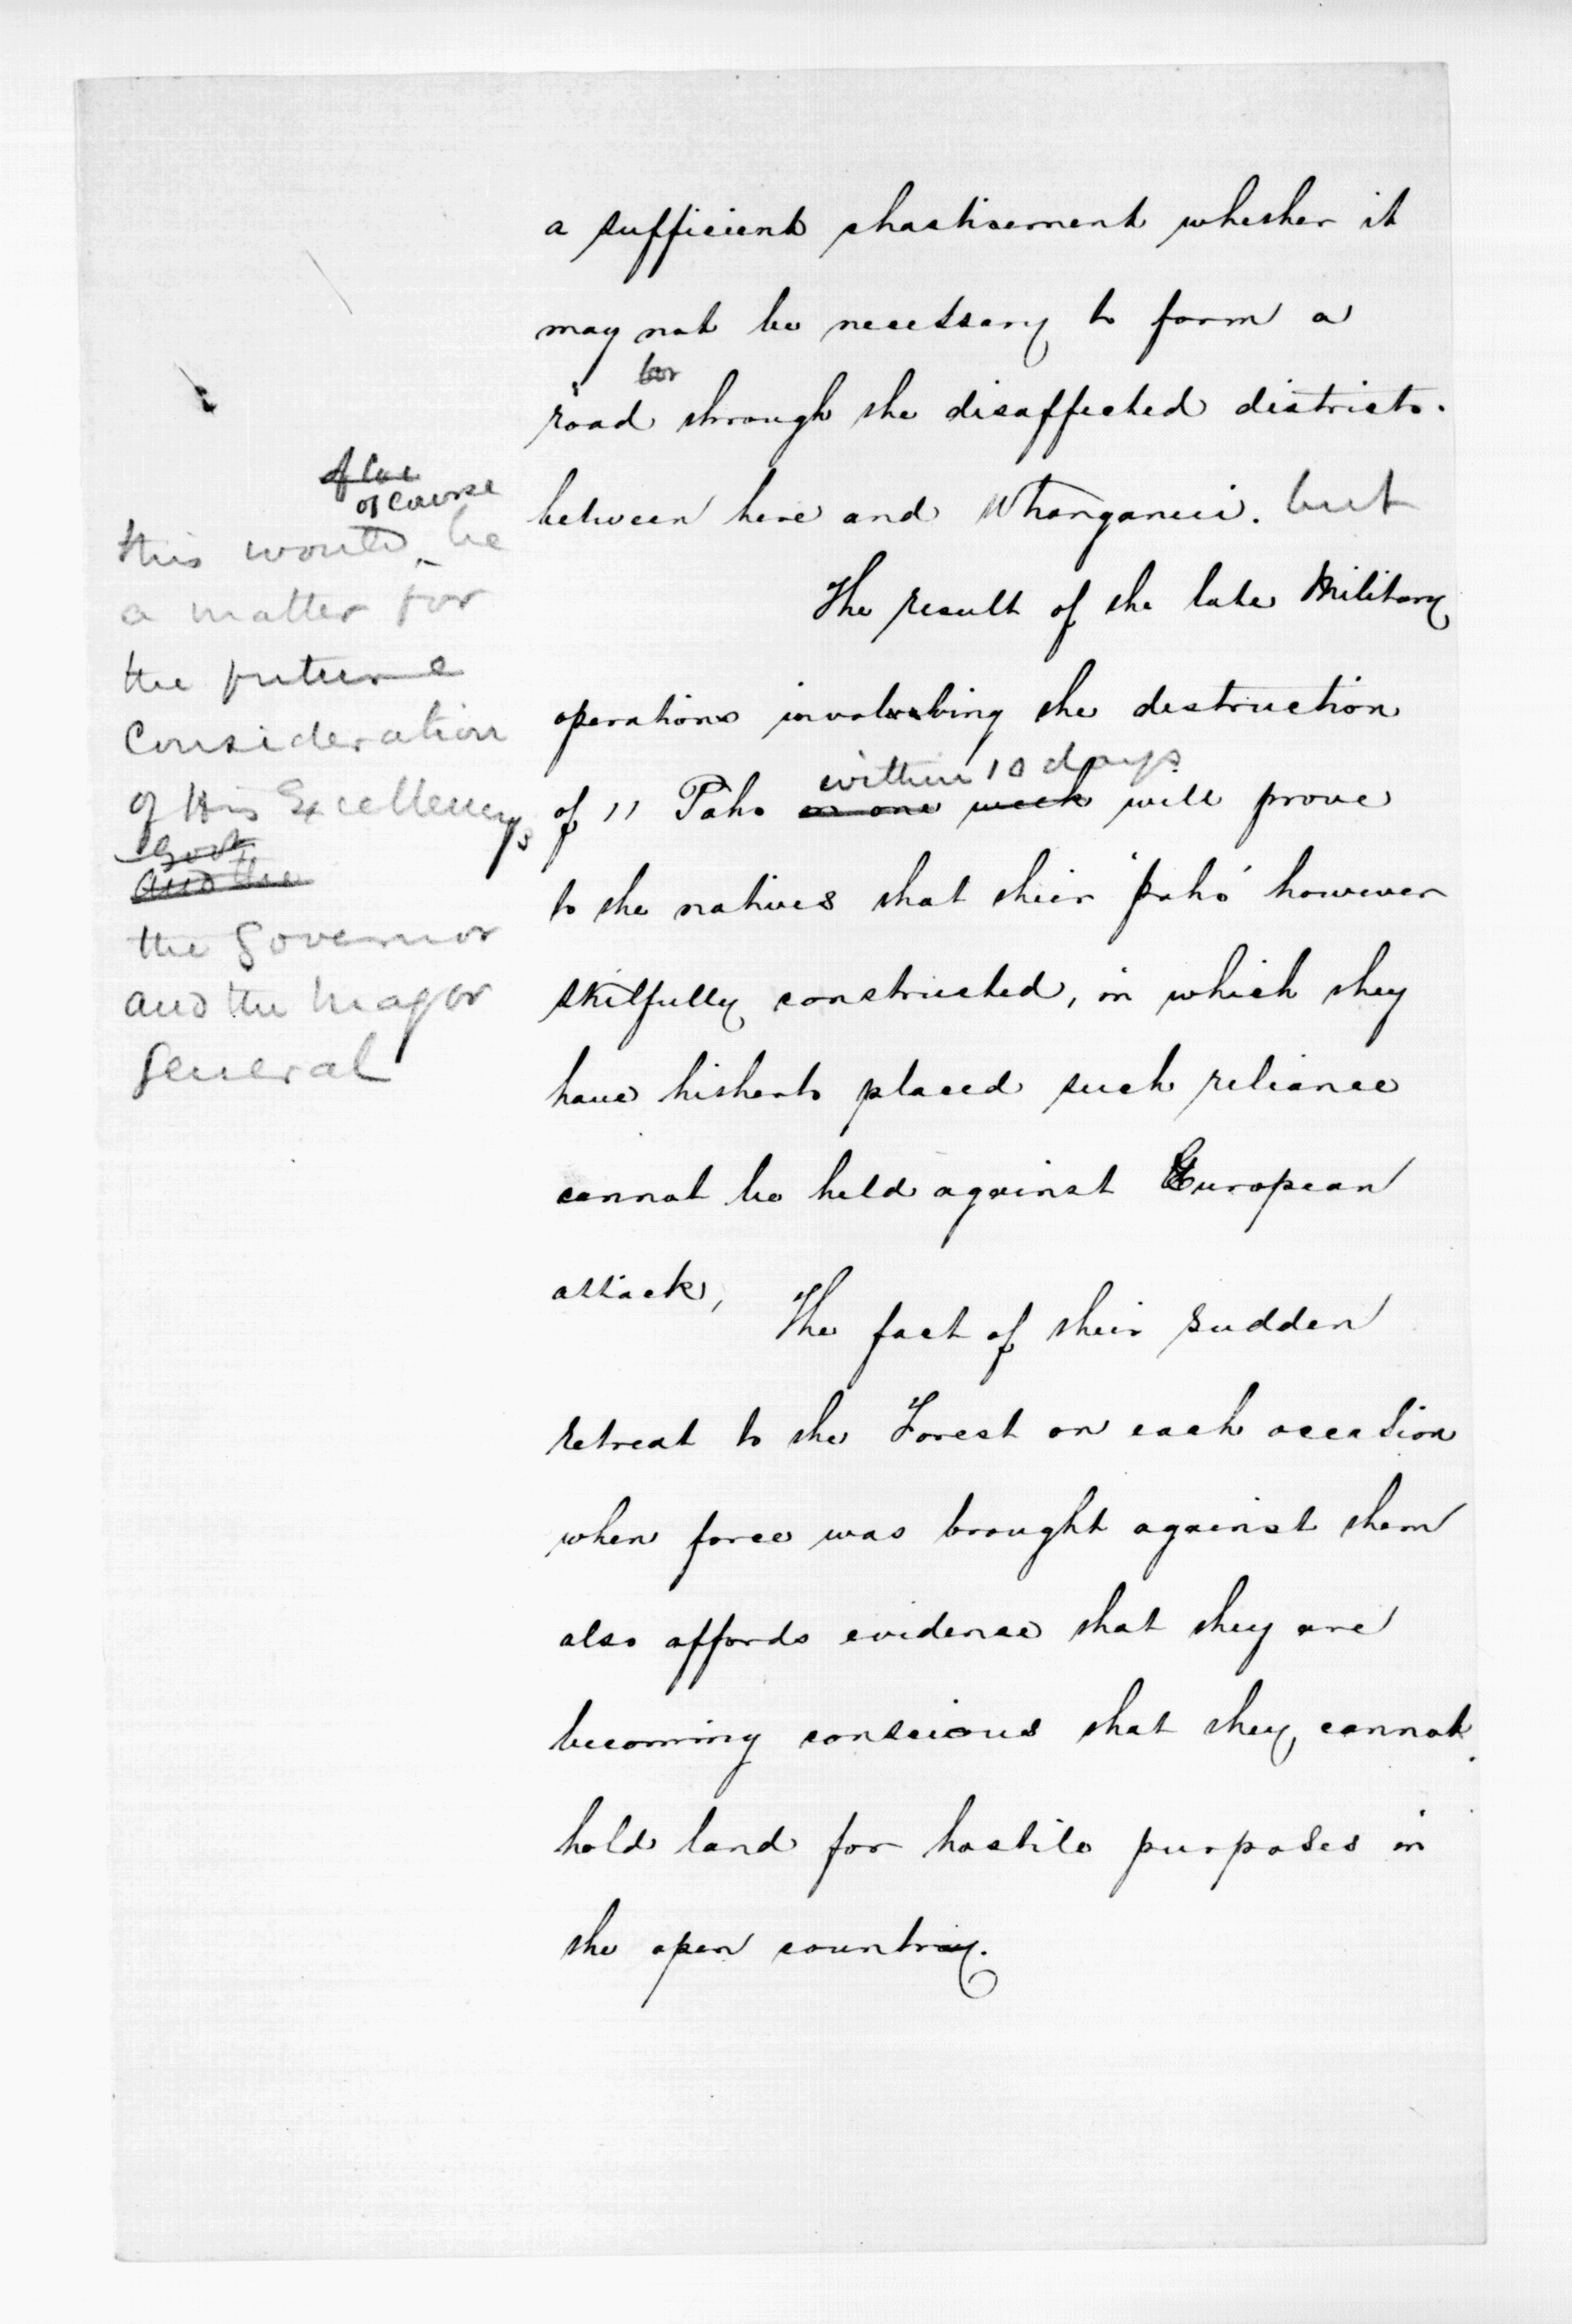 a sufficient chastisement whether it
may not be necessary to form a
road through the disaffected districts.
between here and Whanganui. but
of course
this would be
a matter for
the future
Consideration
of His Excellency's
Govt
and the
the Governor
and the Major
General
The result of the late Military
operations involving the destruction
within 10 days
of 11 Pahs in one week will prove
to the natives that their 'pahs' however
skilfully constructed, in which they
have hitherto placed such reliance
cannot be held against European
attack,
The fact of their sudden
retreat to the Forest on each occasion
when force was brought against them
also affords evidence that they are
becoming conscious that they cannot
hold land for hostile purposes in
the open country.